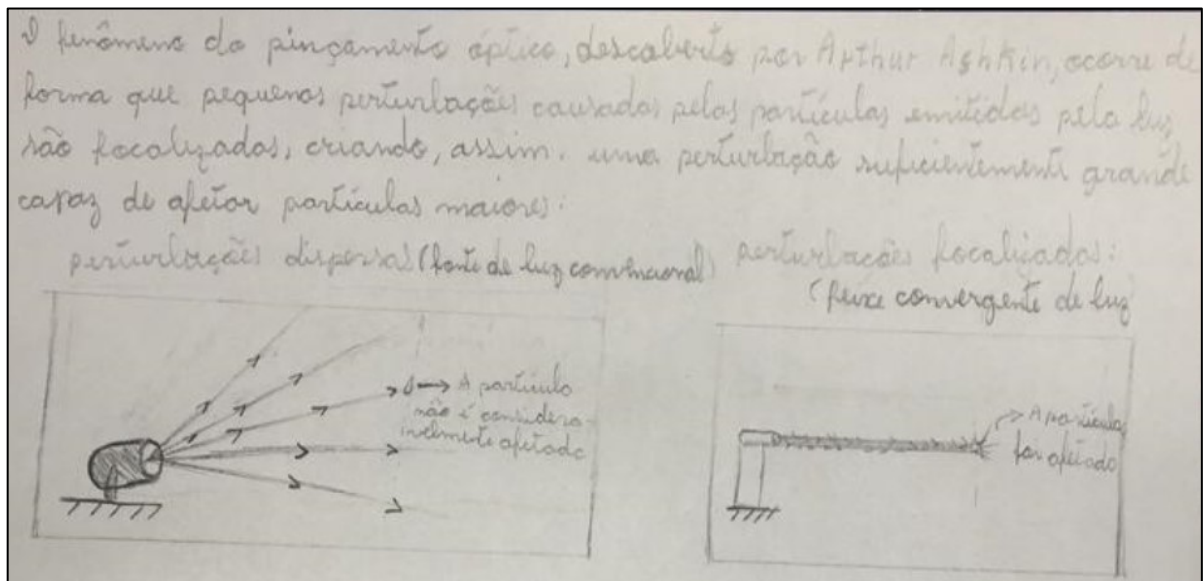 O fenômeno do pinçamento óptico, descoberto por Arthur Ashkin, ocorre de
forma que pequenas perturbações causadas pelas partículas emitidas pela luz
são focalizadas, criando, assim. uma perturbação suficientemente grande
capaz de afetar partículas maiores:
perturbações dispersas (fonte de luz convencional)
perturbações focalizadas:
(feixe convergente de luz
A partícula
não é considera-
velmente afetada
A partícula
foi afetada